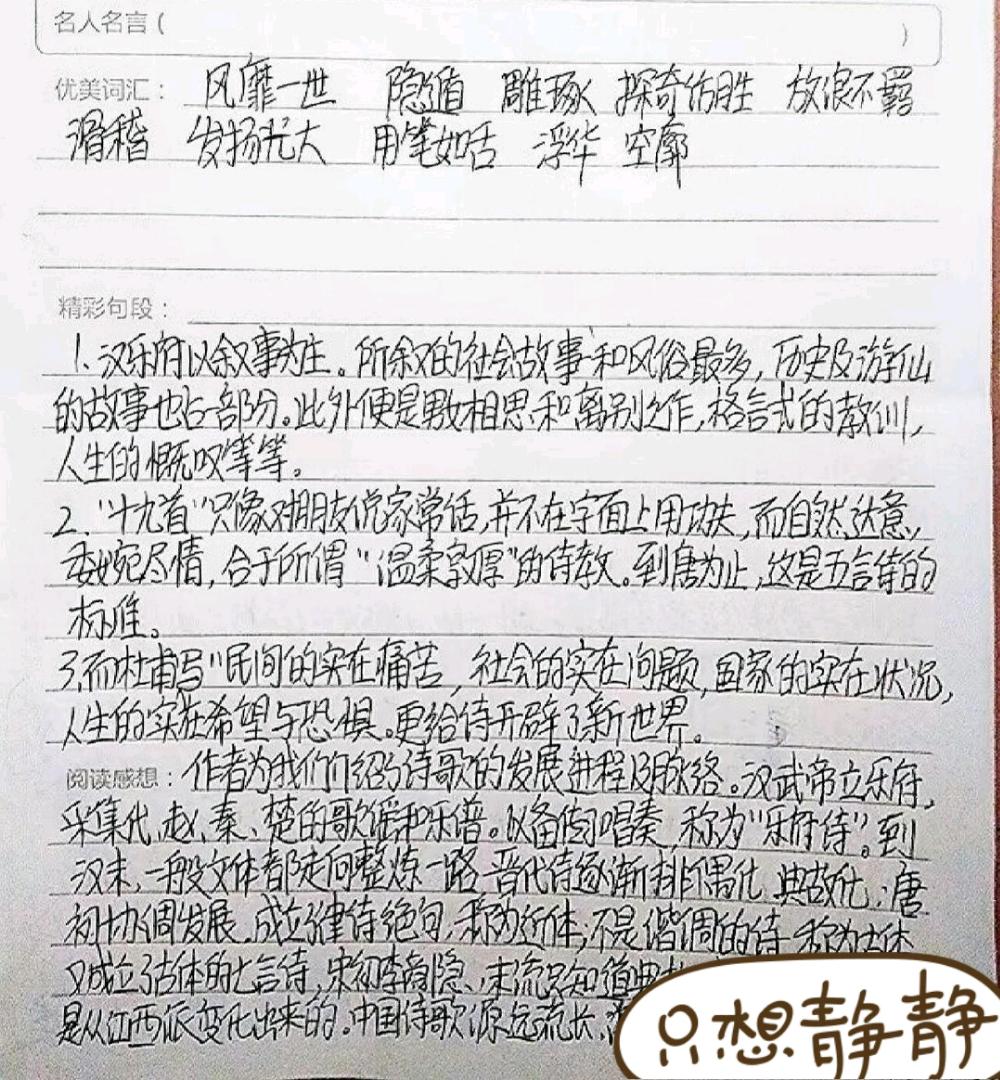 名人名言（ ）
优美词汇： 风靡一世 隐遁 雕琢 探奇访胜 放浪不羁
滑稽 发扬光大 用笔如舌 浮华 空廓
精彩句段：
1、汉乐府以叙事为主。所叙的社会故事和风俗最多，历史及游仙
的故事也占一部分。此外便是男女相思和离别之作，格言式的教训，
人生的慨叹等等。
2、“十九首”只像对朋友说家常话，并不在字面上用功夫，而自然达意，
委婉尽情，合于所谓“温柔敦厚”的诗教。到唐为止，这是五言诗的
标准。
3、而杜甫写“民间的实在痛苦，社会的实在问题，国家的实在状况，
人生的实在希望与恐惧。更给诗开辟了新世界。
阅读感想：作者为我们介绍了诗歌的发展进程及脉络。汉武帝立乐府，
采集代、赵、秦、楚的歌谣和乐谱。以备传唱奏，称为“乐府诗”。到
汉末，一般文体都走向整炼一路 晋代诗逐渐排偶化 典故化；唐
初协调发展，成立律诗绝句，称为近体；不是谐调的诗 称为古体
又成立了古体的七言诗，宋初李商隐、末流只知道典故
是从江西派变化出来的。中国诗歌源远流长，
只想静静